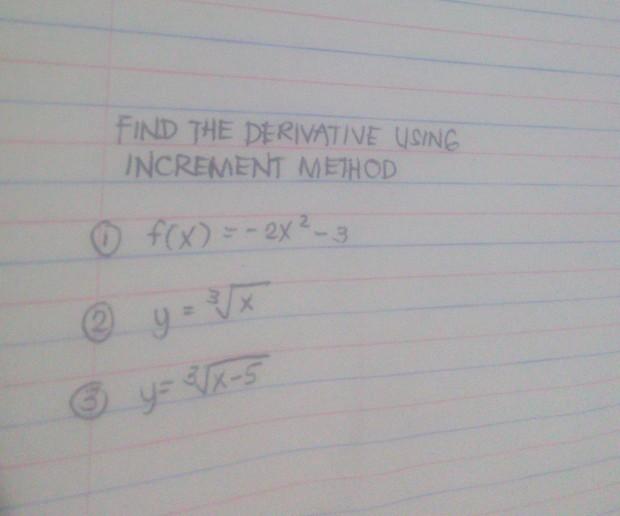 FIND THE DERIVATIVE USING
INCREMENT METHOD
① f(x) = -2x² - 3
② y = ∛x
③ y = ∛(x-5)